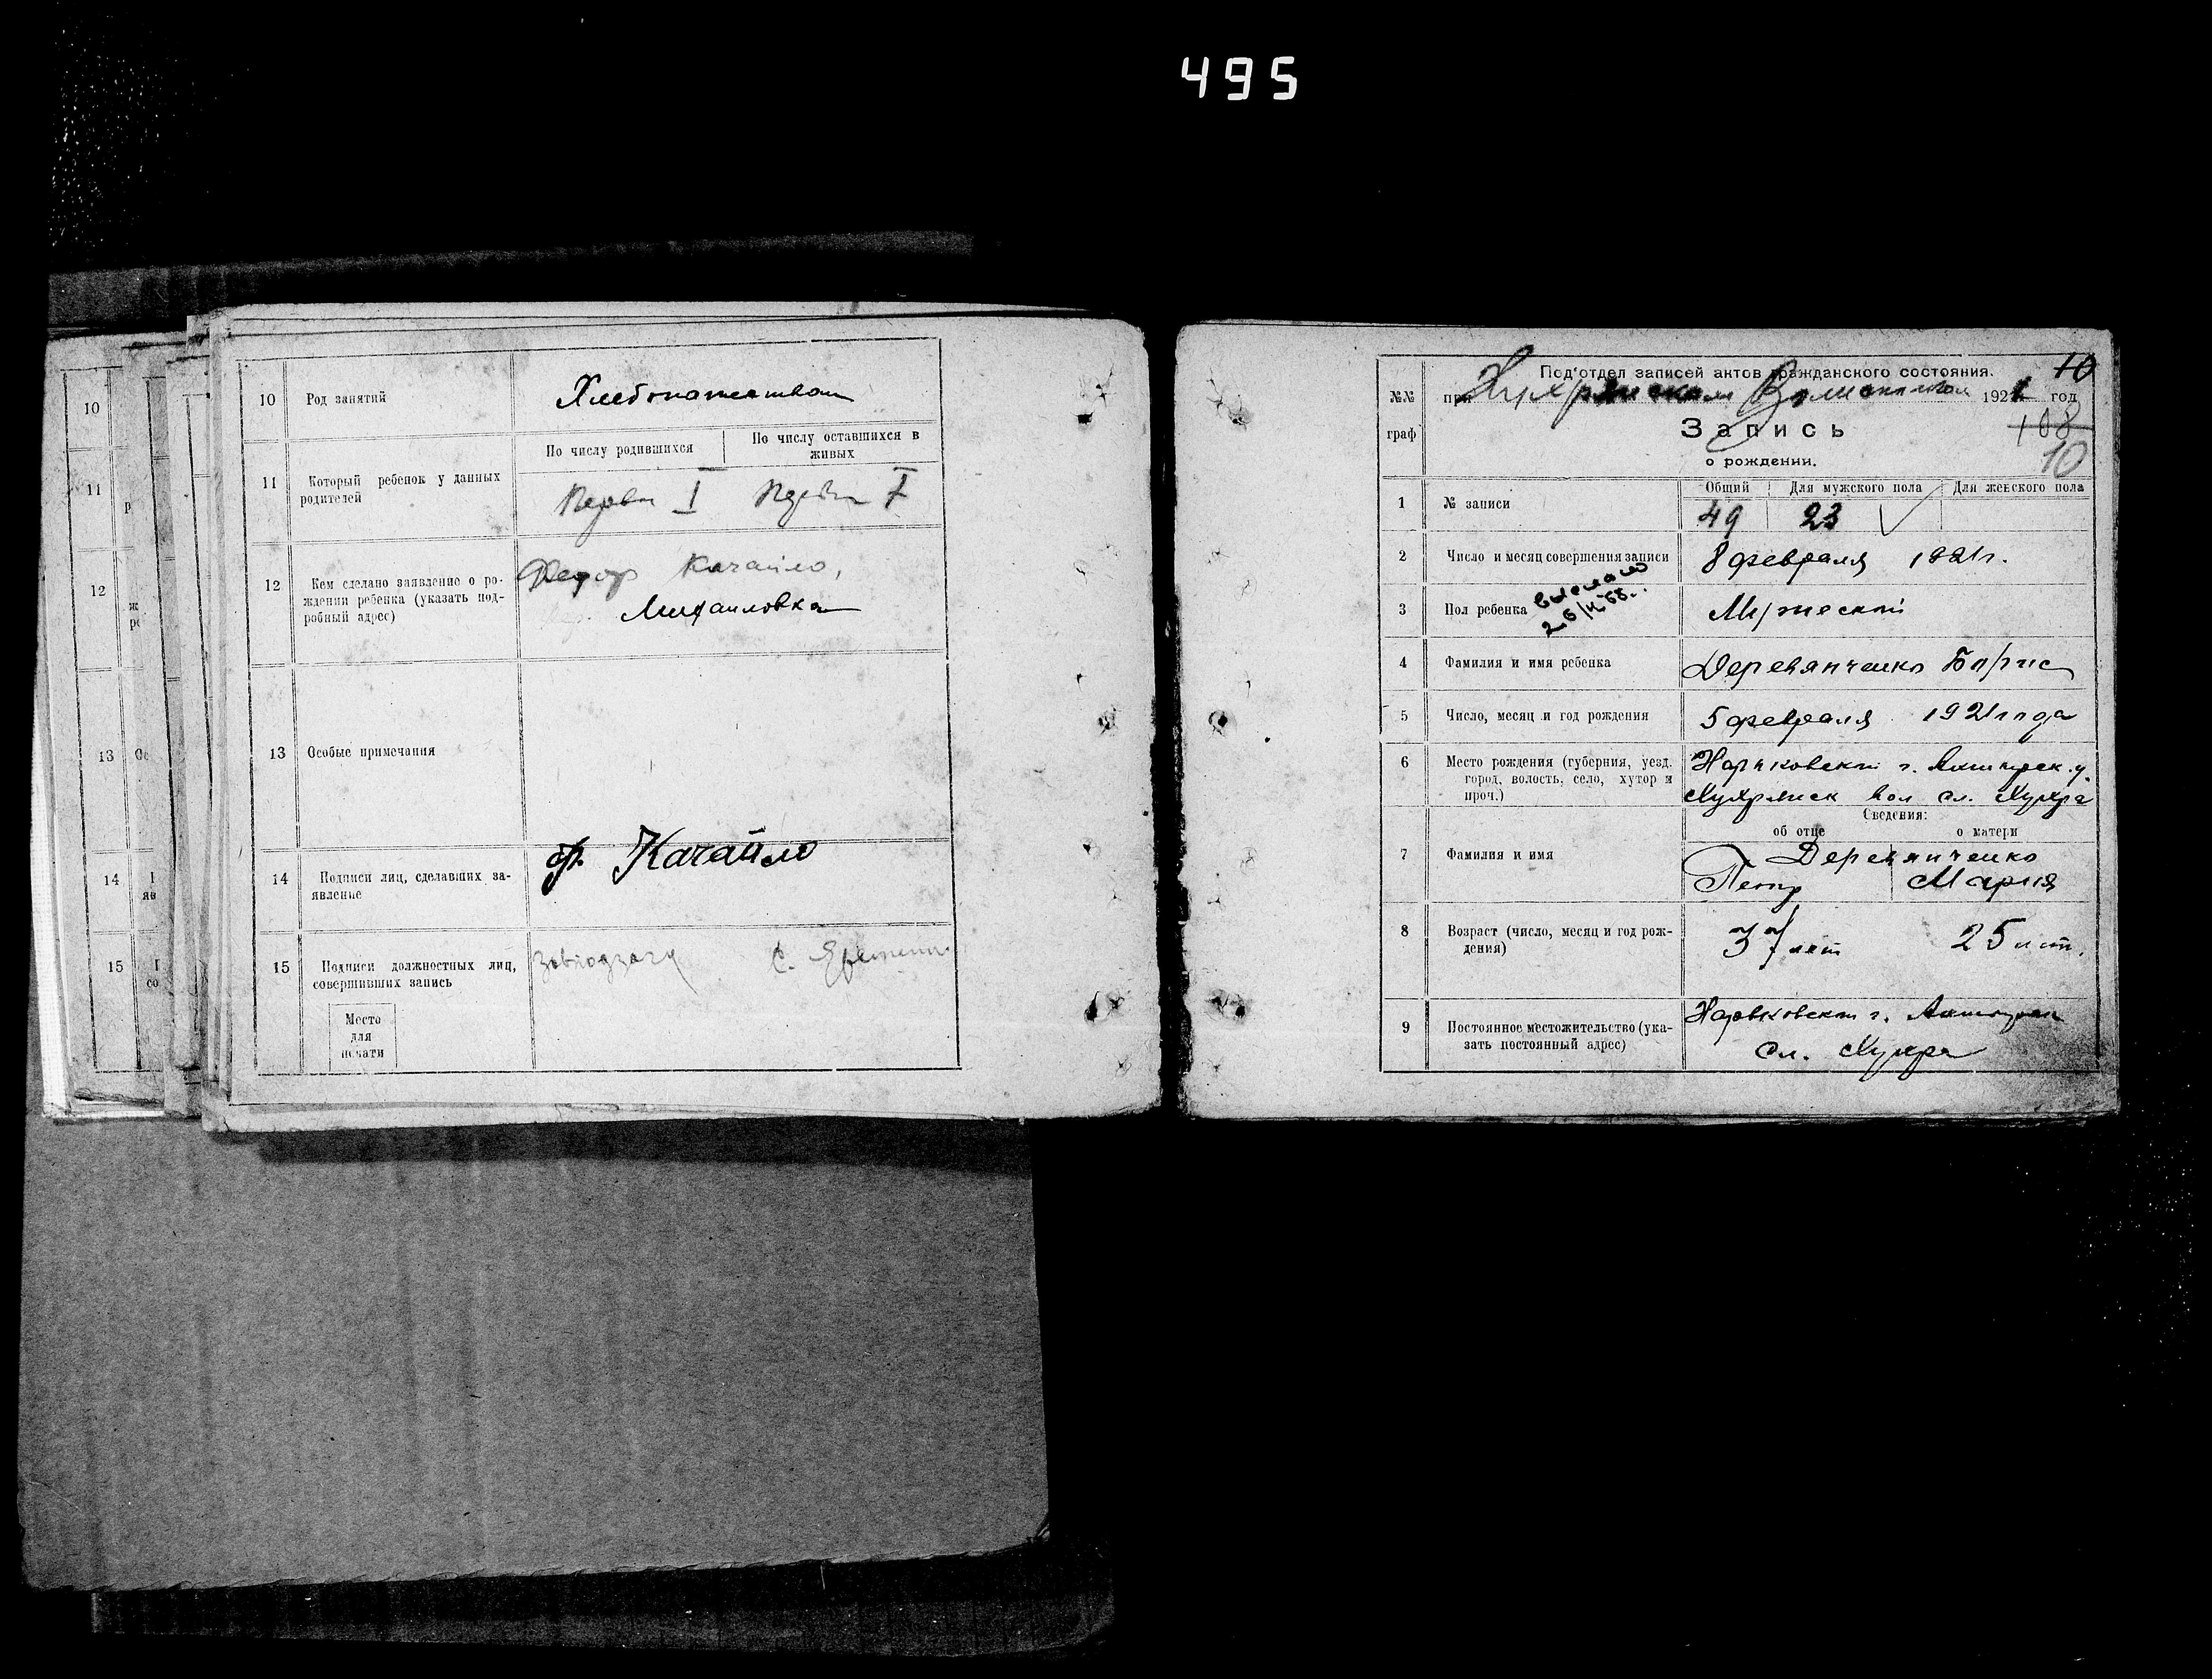 495
10
11
р
12
ж
ре
13
Ос
14
яв
15
со
10 Род занятий Хлебопашеством
11 Который ребенок у данных родителей
По числу родившихся
По числу оставшихся в живых
I
I
12 Кем сделано заявление о ро-
ждении ребенка (указать под-
робный адрес)
Федор Качайло,
Михайловка
13 Особые примечания
14 Подписи лиц, сделавших за-
явление
Ф. Качайло
15 Подписи должностных лиц,
совершивших запись
Завподзагу
Место
для
печати
10
Под'отдел записей актов гражданского состояния.
№№ при 1921 год
граф Запись 108
о рождении. 10
Общий Для мужского пола Для женского пола
1 № записи 49 23
2 Число и месяц совершения записи 8 февраля 1921 г.
3 Пол ребенка Мужской
выслано
4 Фамилия и имя ребенка Деревянченко Борис
5 Число, месяц и год рождения 5 февраля 1921 года
6 Место рождения (губерния, уезд,
город, волость, село, хутор и
проч.)
Харьковской г. Ахтырск. у.
Кужрянск вол сл. Кужра
Сведения:
об отце о матери
7 Фамилия и имя Деревянченко
Петр Мария
8 Возраст (число, месяц и год рож-
дения)
37 лет 25 лет.
9 Постоянное местожительство (ука-
зать постоянный адрес)
Харьковской г.